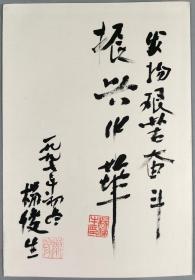 发扬艰苦奋斗
振兴中华
一九九七年初冬
杨俊生